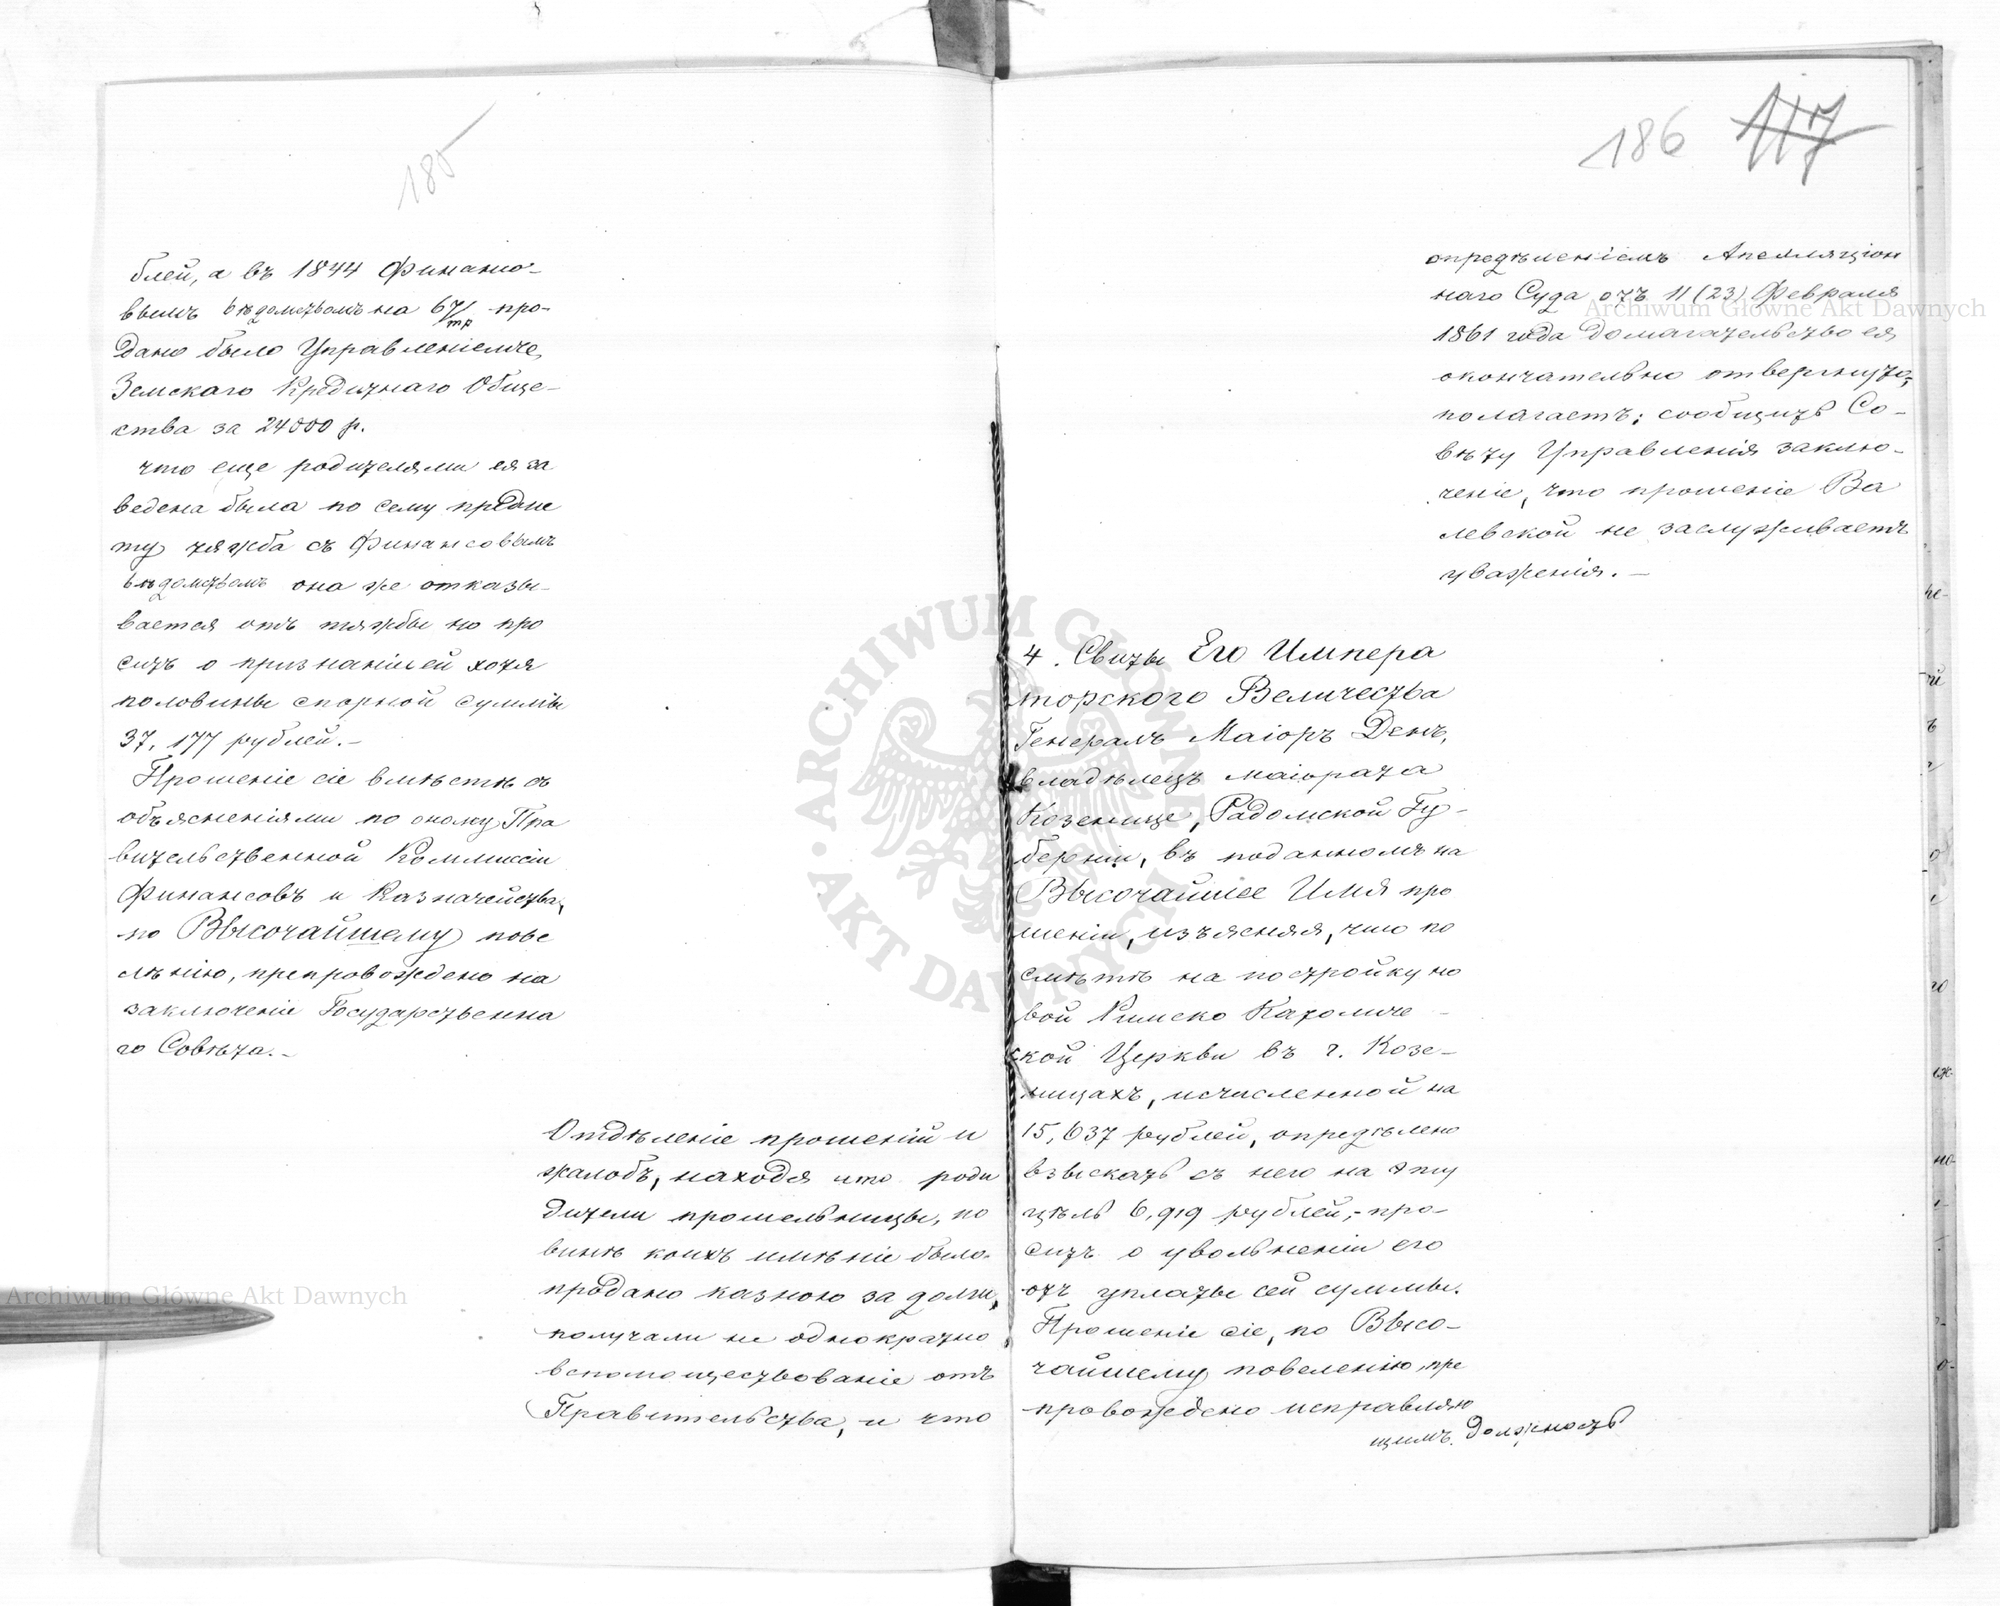 185
блей, а въ 1844 Финансо-
вымъ вѣдомствомъ на 67/тр про-
дано было Управленіемъ
Земскаго Кредитнаго Обще-
ства за 24000 р.
что еще родителями ея за
ведена была по сему предме
ту тяжба съ Финансовымъ
вѣдомствомъ она же отказы-
вается отъ тяжбы но про
ситъ о признаніи ей хотя
половины спорной суммы
37,177 рублей.-
Прошеніе сіе вмѣстѣ съ
объясненіями по оному Пра
вительственной Коммисіи
Финансовъ и Казначейства,
по Высочайшему пове
лѣнію, препровождено на
заключеніе Государственна
го Совѣта.-
Отдѣленіе прошеній и
жалобъ, находя что роди
дители просительницы, по
винѣ коихъ имѣніе было
продано казною за долги,
получали не однократно
вспомоществованіе отъ
Правительства, и что
186 117
опредѣленіемъ Апелляціон
наго Суда отъ 11 (23) Февраля
1861 года домагательство ея
окончательно отвергнуто,
полагаетъ: сообщить Со-
вѣту Управленія заклю-
ченіе, что прошеніе Ва
левской не заслуживаетъ
уваженія.-
4. Свиты Его Импера
торского Величества
Генералъ Маіоръ Денъ,
владѣлецъ маіората
Козенице, Радомской Гу-
берніи, въ поданномъ на
Высочайшее Имя про
шеніи, изъясняя, что по
смѣтѣ на постройку но
вой Римско Католиче-
ской Церкви въ г. Козе-
ницахъ, исчисленной на
15,637 рублей, опредѣлено
взыскать съ него на эту
цѣль 6,919 рублей,- про-
ситъ о увольненіи его
отъ уплаты сей суммы.
Прошеніе сіе, по Высо-
чайшему повеленію, пре
провождено исправляю
щимъ должность
Archiwum Główne Akt Dawnych
Archiwum Główne Akt Dawnych
ARCHIWUM GŁÓWNE AKT DAWNYCH